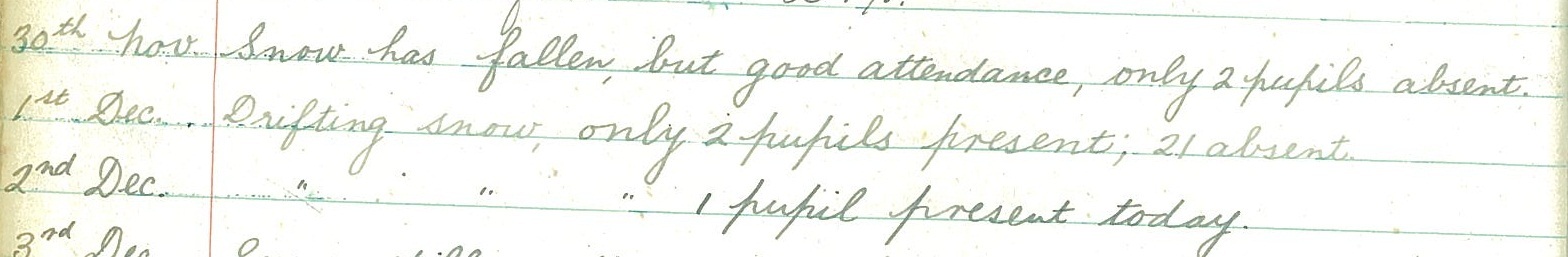 30th Nov. Snow has fallen, but good attendance, only 2 pupils absent.
1st Dec. . Drifting snow, only 2 pupils present; 21 absent.
2nd Dec. " " " 1 pupil present today.
3rd Dec.